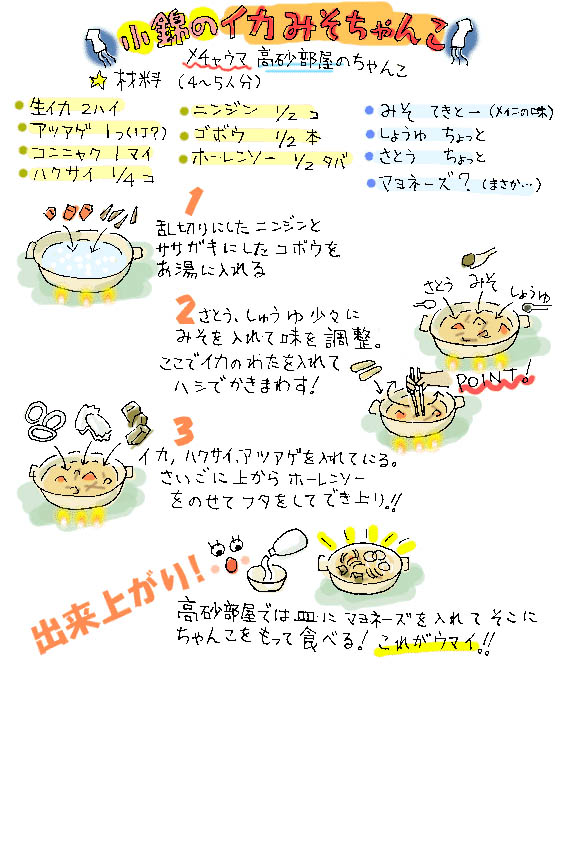 小錦のイカみそちゃんこ
メチャウマ 高砂部屋のちゃんこ
☆材料 (4〜5人分)
生イカ 2ハイ
アツアゲ 1つ(いけ?)
コンニャク 1マイ
ハクサイ 1/4コ
ニンジン 1/2コ
ゴボウ 1/2本
ホーレンソー 1/2タバ
みそ てきとー(メインの味)
しょうゆ ちょっと
さとう ちょっと
マヨネーズ?(まさか…)
1
乱切りにしたニンジンと
ササガキにしたゴボウを
お湯に入れる
さとう みそ しょうゆ
2
さとう、しゅうゆ少々に
みそを入れて味を調整。
ここでイカのわたを入れて
ハシでかきまわす!
POINT!
3
イカ,ハクサイ、アツアゲを入れてにる。
さいごに上からホーレンソー
をのせてフタをしてでき上り!!
出来上がり!
高砂部屋では皿にマヨネーズを入れてそこに
ちゃんこをもって食べる!これがウマイ!!